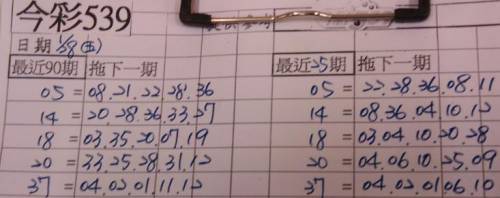 今彩539
日期 1/28(五)
最近90期 拖下一期 最近25期 拖下一期
05 = 08.21.22.28.36 05 = 22.28.36.08.11
14 = 20.28.36.33.27 14 = 08.36.04.10.12
18 = 03.35.20.07.19 18 = 03.04.10.20.28
20 = 33.25.28.31.12 20 = 04.06.10.25.09
37 = 04.02.01.11.12 37 = 04.02.01.06.10